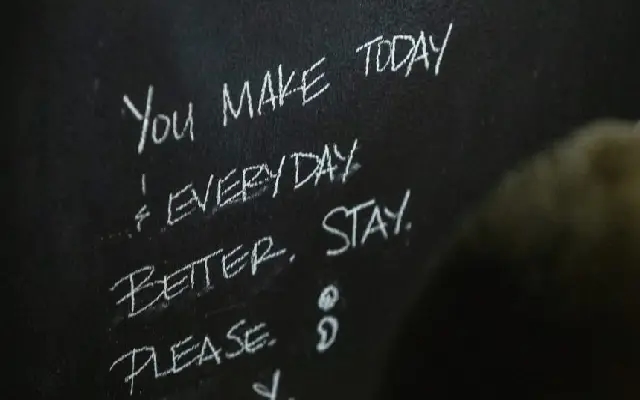 YOU MAKE TODAY
& EVERYDAY
BETTER. STAY.
PLEASE. ;